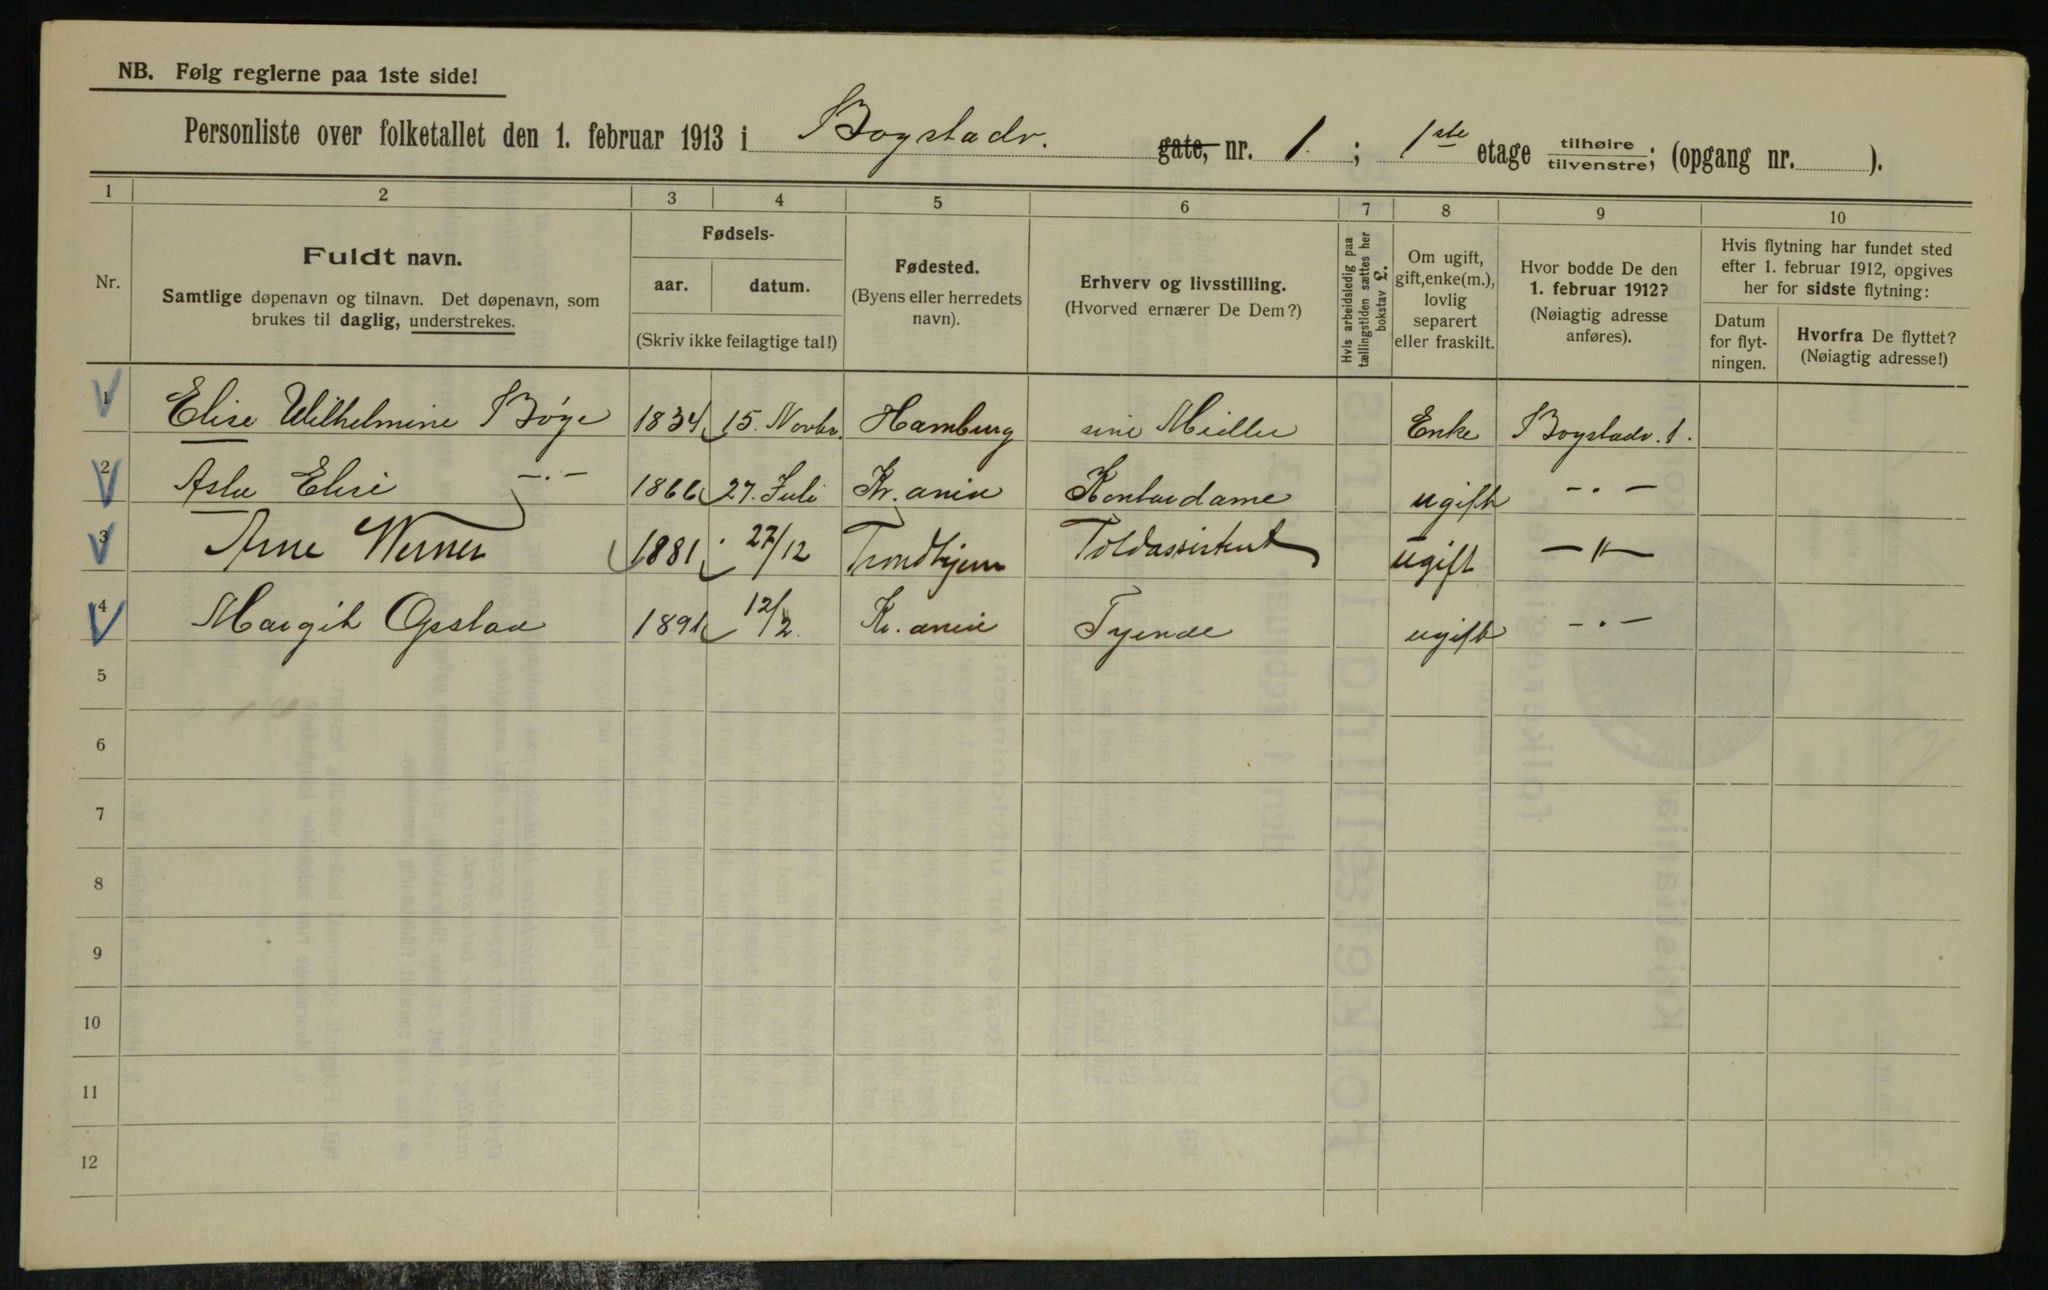 NB. Følg reglerne paa 1ste side!
Personliste over folketallet den 1. februar 1913 i Bogstadv. gate, nr. 1. ; 1ste etage tilhøire tilvenstre; (opgang nr. ).
1 2 3 4 5 6 7 8 9 10
Nr.
Fuldt navn.
Samtlige døpenavn og tilnavn. Det døpenavn, som
brukes til daglig, understrekes.
Fødsels-
aar. datum.
(Skriv ikke feilagtige tal!)
Fødested.
(Byens eller herredets
navn).
Erhverv og livsstilling.
(Hvorved ernærer De Dem?)
Hvis arbeidsledig paa
tællingstiden sættes her
bokstav L.
Om ugift,
gift, enke(m.),
lovlig
separert
eller fraskilt.
Hvor bodde De den
1. februar 1912?
(Nøiagtig adresse
anføres).
Hvis flytning har fundet sted
efter 1. februar 1912, opgives
her for sidste flytning:
Datum
for flyt-
ningen.
Hvorfra De flyttet?
(Nøiagtig adresse!)
1 Elise Wilhelmine Bøge 1834 15. Novbr. Hamburg sine Midler Enke Bogstadv. 1.
2 Elise -"- 1866 27. Juli Kr.ania Kontordame ugift -"-
3 Arne Werner 1881 27/12 Trondhjem Toldassistent ugift -"-
4 Margit Opstad 1891 12/2. Kr.ania Tyende ugift -"-
5
6
7
8
9
10
11
12